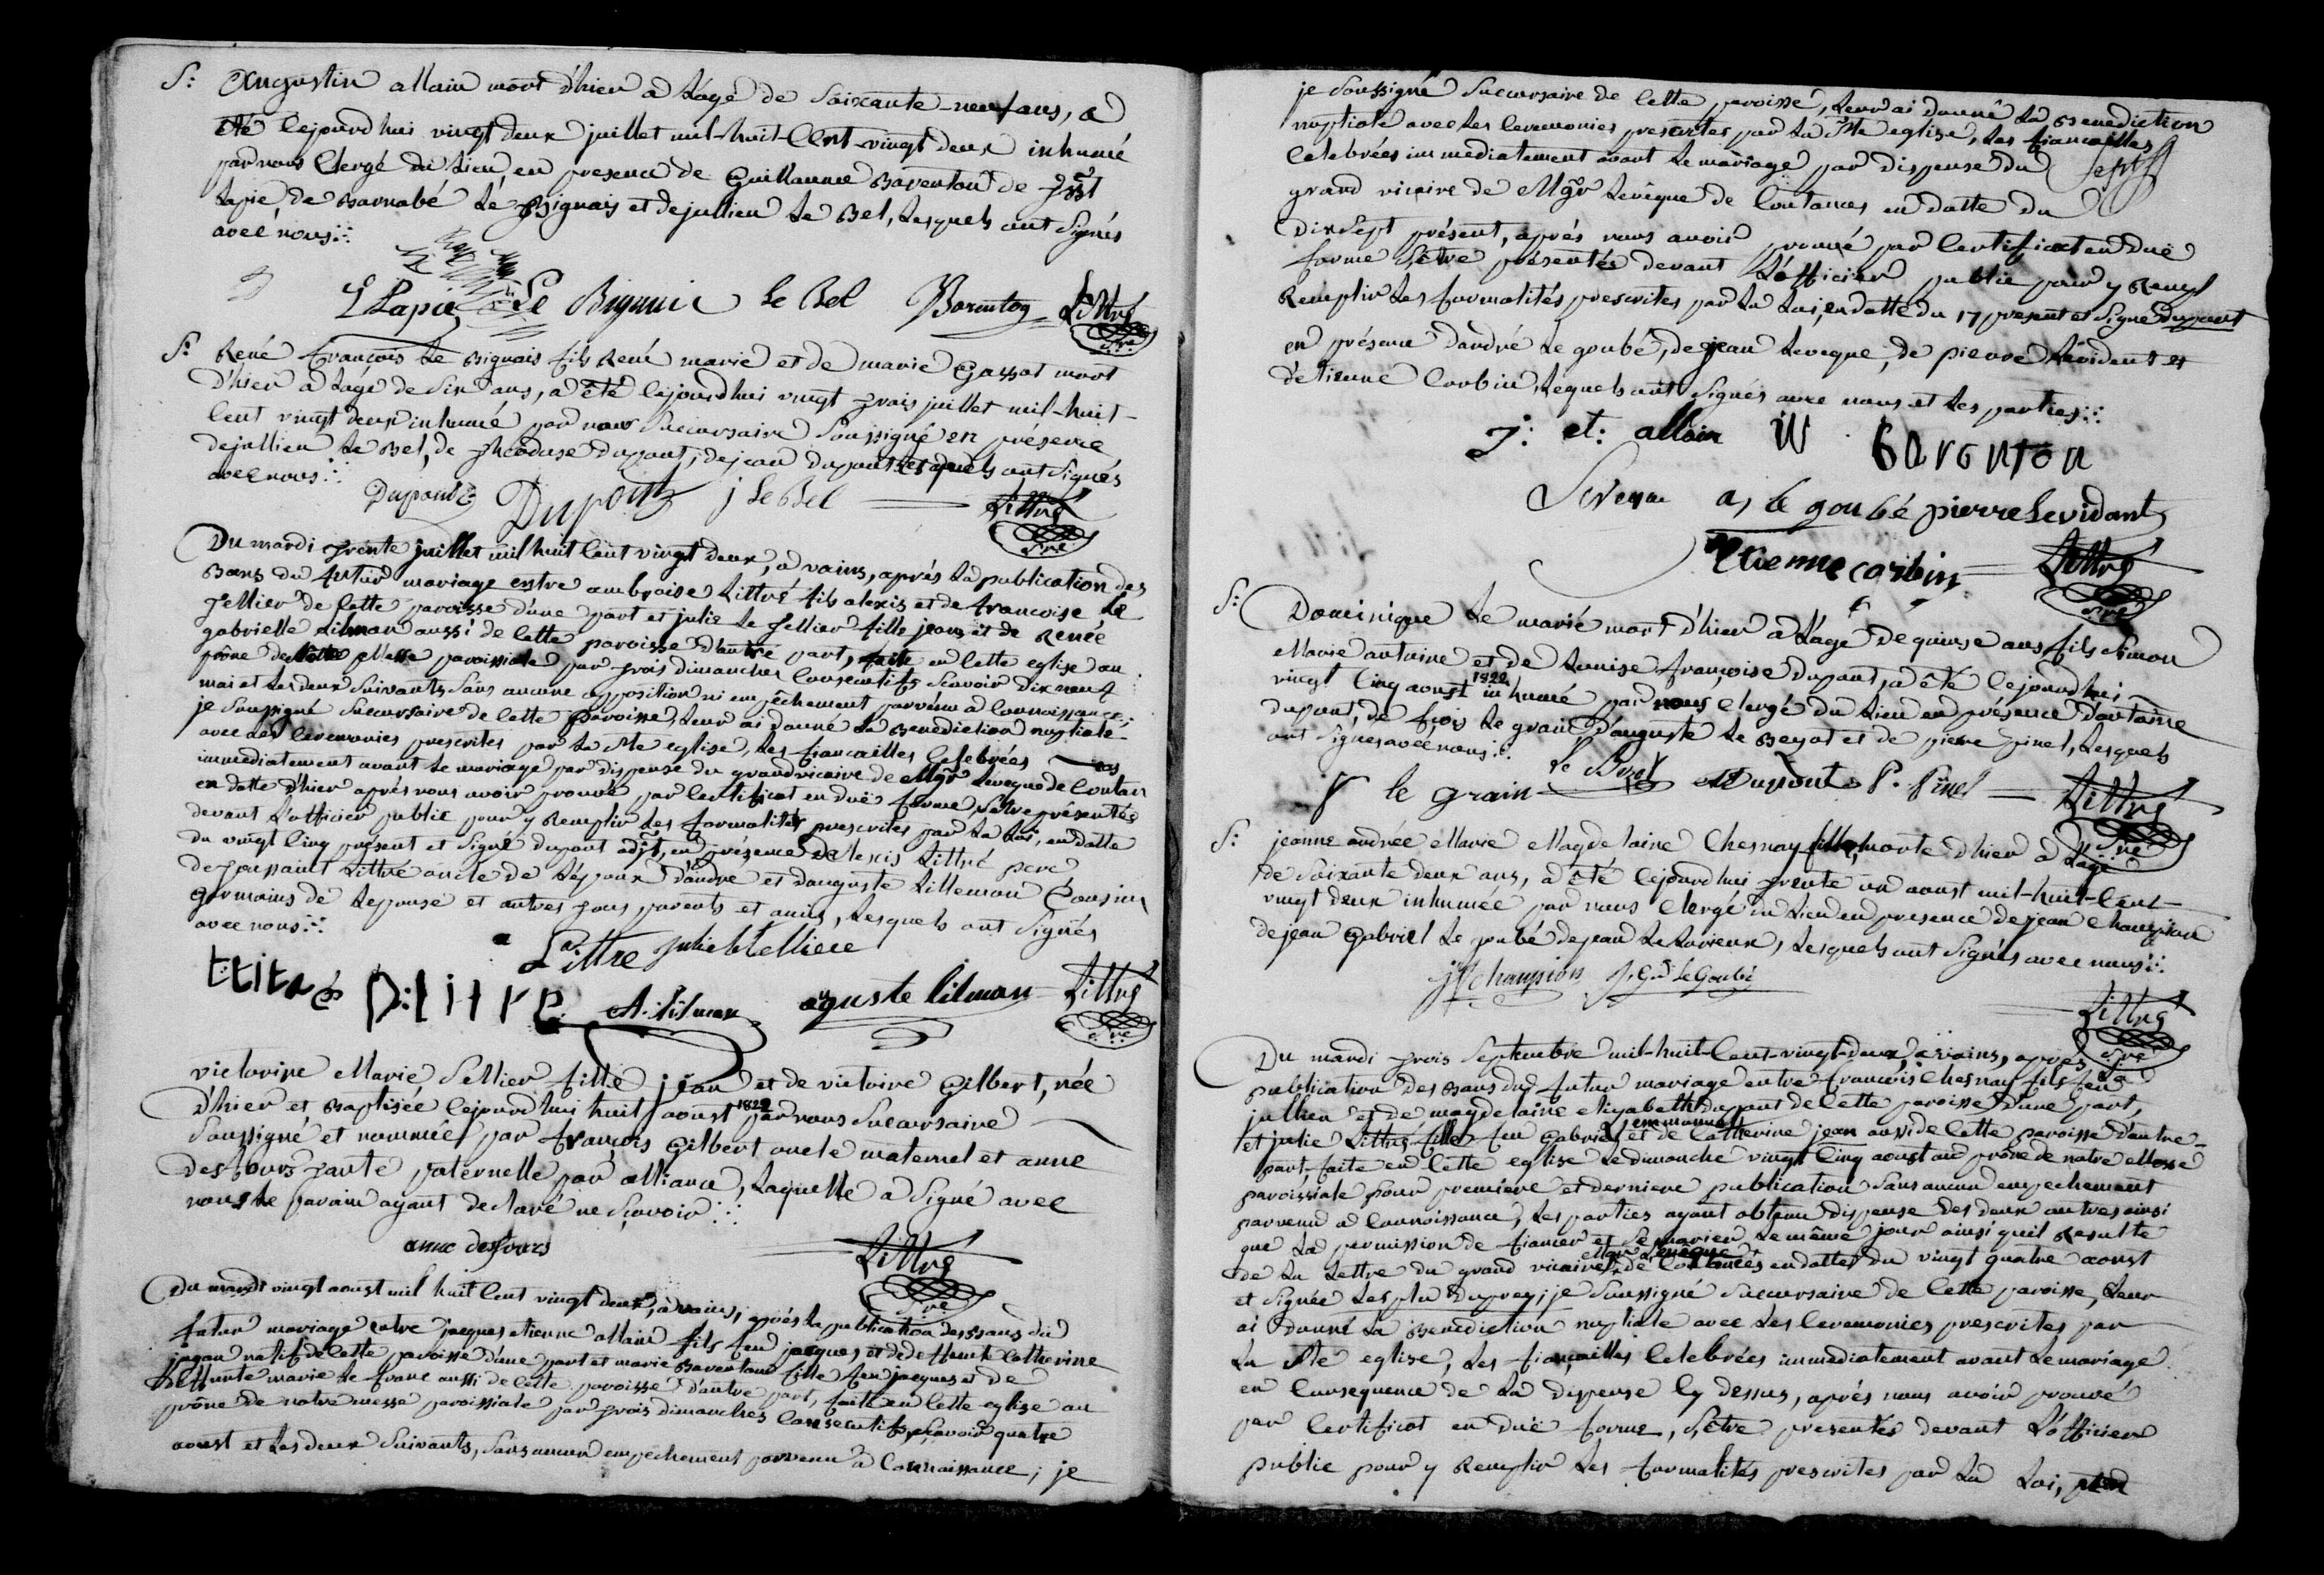 S: Augustin allain mort d'hier a L'âge de Soixante-neuf ans, a
été Cejourdhui vingt deux juillet mil-huit-Cent-vingt deux inhumé
par nous Clergé du Lieu, en presence de Guillaume Barenton de
Lapie, de Barnabé Le Bignais et de jullien Le Bel, Lesquels ont Signés
avec nous
Lapie Le Bignaie le Bel Barenton Littré
S: René François Le Bignais fils René marie et de marie Gassot mort
D'hier a L'âge de Six ans, a été Cejourdhui vingt trois juillet mil-huit-
Cent vingt deux inhumé par nous Succursaire Soussigné en présence
de jullien Le Bel, de Theodose dupont, de jean dupont Lesquels ont Signés
avec nous
Dupont Dupont j Le Bel Littré
Du mardi trente juillet mil huit Cent vingt deux, a vains, aprés La publication des
Bans du futur mariage entre ambroise Littré fils alexis et de francoise Le
Tellier de Cette paroisse d'une part et julie Le Tellier fille jean et de Renée
gabrielle Lilman aussi de Cette paroisse d'autre part, faite en Cette eglise au
prône de Messe paroissiale par trois dimanches Consecutifs Scavoir dix neuf
mai et Les deux Suivants Sans aucune opposition ni empêchement parvenu a Connoissance;
je Soussigné Succursaire de Cette paroisse, Leur ai donné La Benediction nuptiale
avec Les Ceremonies prescrites par La Ste eglise, Les fiancailles Celebrées
immediatement avant Le mariage par dispense du grand vicaire de Mgr Leveque de Coutances
en datte d'hier aprés nous avoir prouvé par Certificat en duë forme S'être présentés
devant L'officier public pour y Remplir Les formalités prescrites par La Loi, en datte
du vingt Cinq présent et Signé dupont adjt, en présence d'alexis Littré pere
de Toussaint Littré oncle de L'époux d'andre et d'auguste Lilleman Cousins
germains de Lepouse et autres tous parents et amis, Lesquels ont Signés
avec nous
a Littre julie le telliere
ttitré D:Littre A. lilman auguste lilman Littré
victorine Marie Tellier fille jean et de victoire Gilbert, née
D'hier et Baptisée Cejourdhui huit aoust 1822 par nous Succursaire
Soussigné et nommée par françois Gilbert oncle maternel et anne
Desfours tante paternelle par alliance, Laquelle a Signé avec
nous Le parain ayant declaré ne Scavoir
anne desfours Littré
Du mardi vingt aoust mil huit Cent vingt deux, a vains, aprés La publication des Bans du
futur mariage entre jacques etienne allain fils feu jacques et de deffunte Catherine
natif de Cette paroisse d'une part et marie Barenton fille feu jacques et de
deffunte marie Le franc aussi de Cette paroisse d'autre part, faite en Cette eglise au
prône de notre messe paroissiale par trois dimanches Consecutifs, Scavoir quatre
aoust et Les deux Suivants, Sans aucun empêchement parvenu a Connaissance; je
je Soussigné Succursaire de Cette paroisse, Leur ai donné La Benediction
nuptiale avec Les Ceremonies prescrites par La Ste eglise, Les fiancailles
Celebrées immediatement avant Le mariage par dispense du
grand vicaire de Mgr Leveque de Coutances en datte du
Dix Sept présent, aprés nous avoir prouvé par Certificat en duë
forme S'être présentés devant L'officier public pour y
Remplir Les formalités prescrites par La Loi, en datte du 17 present et Signé Dupont
en présence d'andré Le goubé, de jean Leveque, de pierre Levident et
d'etienne Corbin, Lesquels ont Signés avec nous et Les parties
j: et: allain W Barenton
a, le goubé pierre Levidant
Etienne corbin Littré
S: Dominique Le marié mort d'hier a L'âge de quinse ans fils Simon
Marie antoine et de Louise Françoise dupont, a été Cejourdhui
vingt Cinq aoust 1822 inhumé par nous Clergé du Lieu en présence d'antoine
dupont, de frçois Le grain d'auguste Le Bezot et de pierre pinel, Lesquels
ont Signés avec nous
f le grain le Bezot Dupont P. Pinel Littré
S: jeanne andrée Marie Magdelaine Chesnay fille, morte d'hier a L'âge
de Soixante deux ans, a été Cejourdhui trente un aoust mil-huit-Cent-
vingt deux inhumée par nous Clergé du Lieu en presence de jean Champion
de jean Gabriel Le goubé de jean Le Lorieux, Lesquels ont Signés avec nous
Champion j. G. le Goubé
Littré
Du mardi trois Septembre mil-huit-Cent-vingt-deux, a vains, aprés La
publication des Bans du futur mariage entre francois Chesnay fils feu
jullien et de magdelaine elizabeth dupont de Cette paroisse d'une part,
et julie Littré fille feu Gabriel emmanuel et de Catherine jean aussi de Cette paroisse d'autre-
part-faite en Cette eglise Le dimanche vingt Cinq aoust au prône de notre Messe
paroissiale pour premiere et derniere publication Sans aucun empechement
parvenu a Connoissance, Les parties ayant obtenu dispense des deux autres ainsi
que La permission de fiancer et Se marier Le même jour ainsi quil Resulte
de La Lettre du grand vicaire de Mgr Leveque de Coutances en datte du vingt quatre aoust
et Signée Lesplu Duprey; je Soussigné Succursaire de Cette paroisse, Leur
ai donné La Benediction nuptiale avec Les Ceremonies prescrites par
La Ste eglise, Les fiançailles Celebrées immediatement avant Le mariage
en Consequence de La dispense Cy dessus, aprés nous avoir prouvé
par Certificat en duë forme, S'être presentés devant L'officier
public pour y Remplir Les formalités prescrites par La Loi,